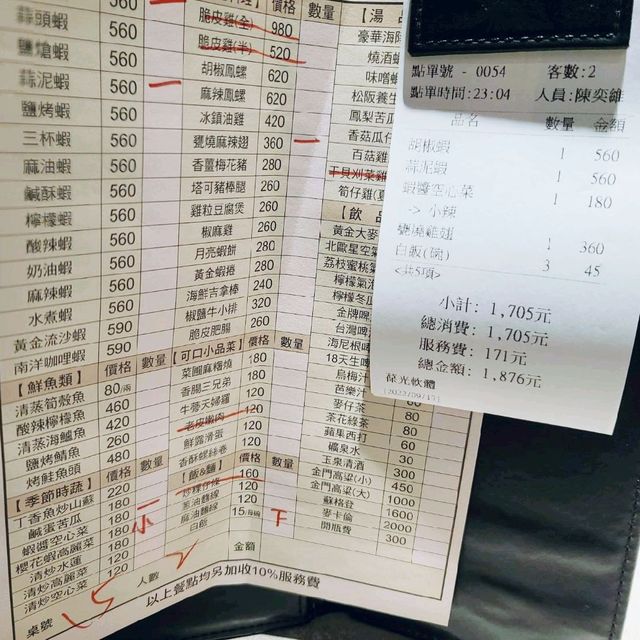 蒜頭蝦 560
鹽焗蝦 560
蒜泥蝦 560
鹽烤蝦 560
三杯蝦 560
麻油蝦 560
鹹酥蝦 560
檸檬蝦 560
酸辣蝦 560
奶油蝦 560
麻辣蝦 560
水煮蝦 560
黃金流沙蝦 590
南洋咖哩蝦 590
【鮮魚類】 價格 數量
清蒸筍殼魚 80/兩
酸辣檸檬魚 460
清蒸海鱸魚 420
鹽烤鯖魚 260
烤鮭魚頭 480
【季節時蔬】 價格 數量
丁香魚炒山蘇 220
鹹蛋苦瓜 180
蝦醬空心菜 180 小
櫻花蝦高麗菜 180
清炒水蓮 180
清炒高麗菜 120
清炒空心菜 120
桌號 5 人數 2 金額
以上餐點均另加收10%服務費
價格 數量
脆皮雞(全) 980
脆皮雞(半) 520
胡椒鳳螺 620
麻辣鳳螺 620
冰鎮油雞 420
甕燒麻辣翅 360
香薑梅花豬 280
塔可豬棒腿 260
雞粒豆腐煲 260
椒麻雞 260
月亮蝦餅 280
黃金蝦捲 240
海鮮吉拿棒 240
椒鹽牛小排 320
脆皮肥腸 260
【可口小品菜】 價格 數量
菜脯麻糬燒 180
香腸三兄弟 180
牛蒡天婦羅 120
老皮嫩肉 120
鮮露滑蛋 120
香酥螺絲卷 120
【飯&麵】 價格 數量
炒粿仔條 160
蔥油麵線 120
麻油麵線 120
白飯 15/碗
【湯 品
豪華海陸
燒酒蝦
味噌蝦
松阪養生
鳳梨苦瓜
香菇瓜仔
百菇雞
干貝刈菜雞
筍仔雞(夏
【飲 品
黃金大麥
北歐星空氣
荔枝蜜桃氣
檸檬氣泡
檸檬冬瓜
金牌啤
台灣啤
海尼根啤
18天生啤
烏梅汁
芭樂汁
麥仔茶 80
茶花綠茶 80
蘋果西打 60
礦泉水 30
玉泉清酒 300
金門高粱(小) 450
金門高粱(大) 1000
蘇格登 1600
麥卡倫 2000
開瓶費 300
點單號 - 0054 客數:2
點單時間:23:04 人員:陳奕雄
品名 數量 金額
胡椒蝦 1 560
蒜泥蝦 1 560
蝦醬空心菜 1 180
-> 小辣
甕燒雞翅 1 360
白飯(碗) 3 45
<共5項>
小計: 1,705元
總消費: 1,705元
服務費: 171元
總金額: 1,876元
葆光軟體